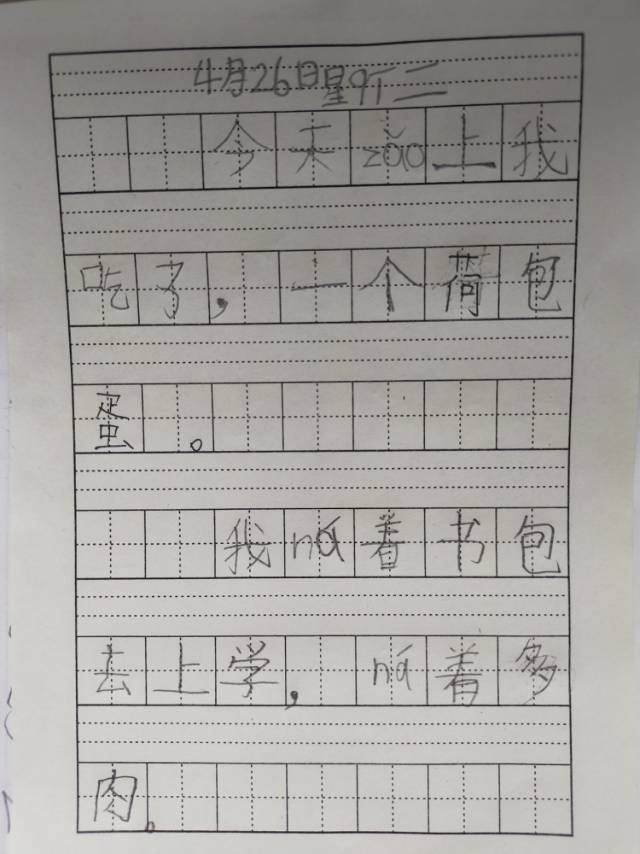 4月26日星qī二
今天zǎo上我
吃了,一个荷包
蛋。
我ná着书包
去上学,ná着多
肉。